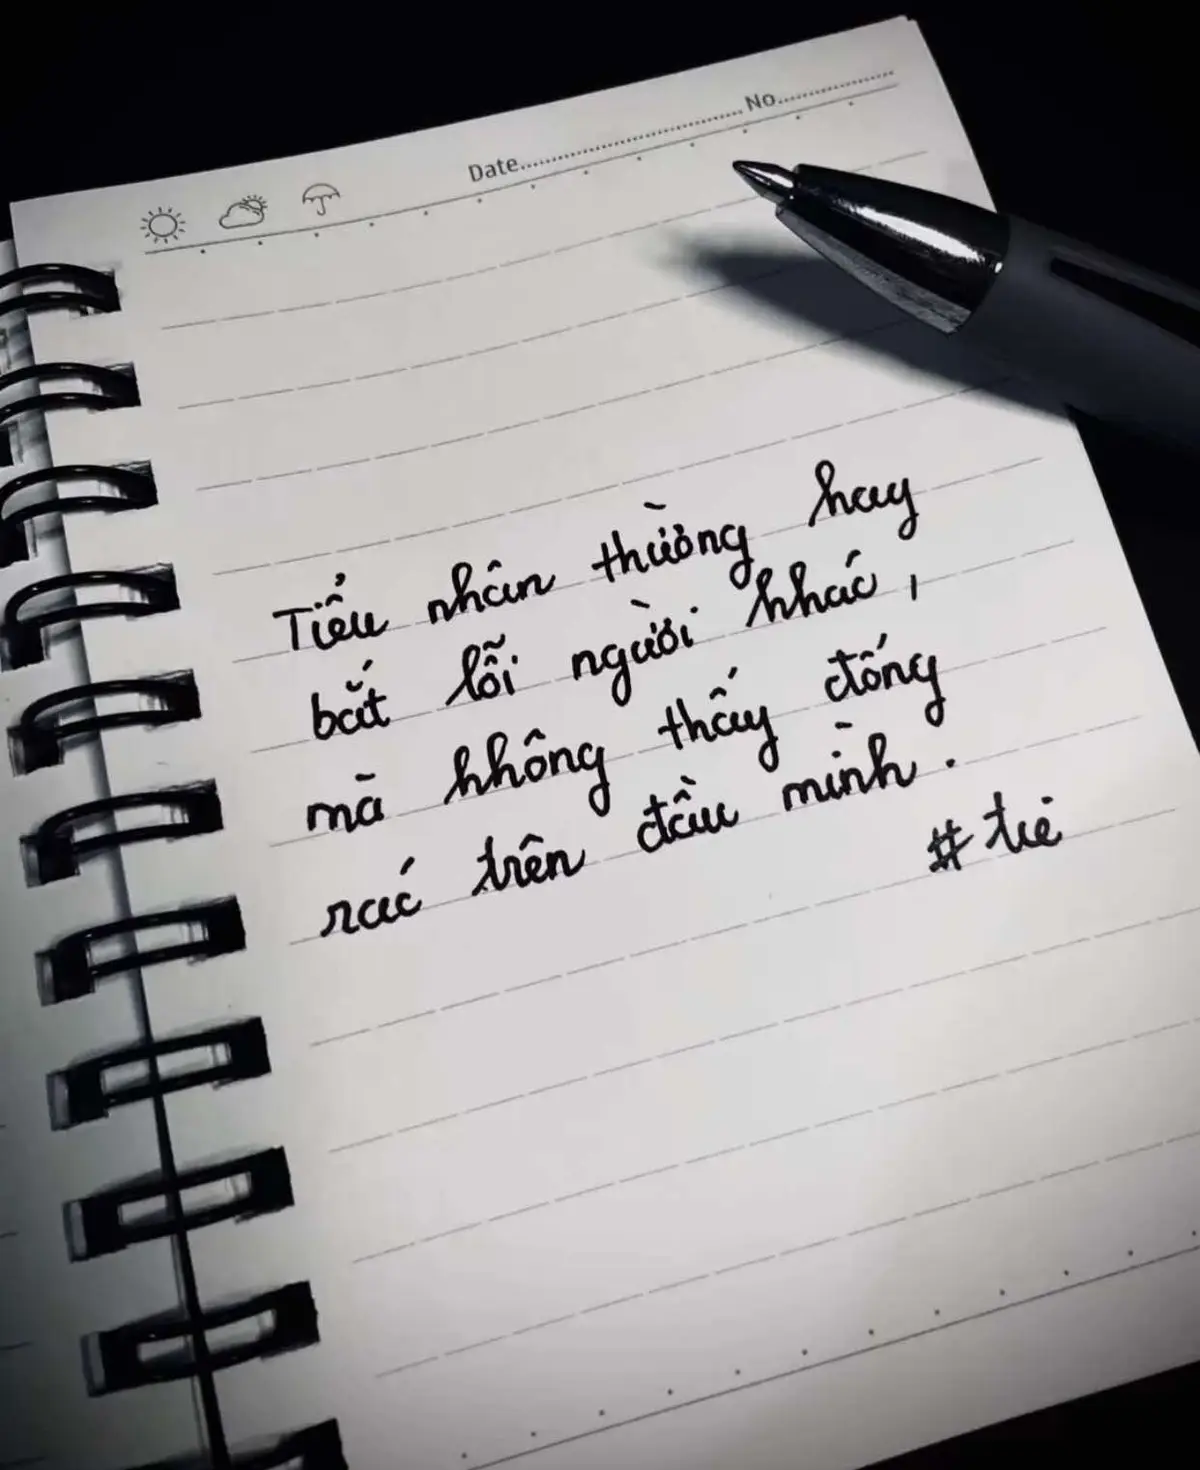 Date............................ No...............
Tiểu nhân thường hay
bắt lỗi người khác,
mà không thấy đống
rác trên đầu mình.
#tie